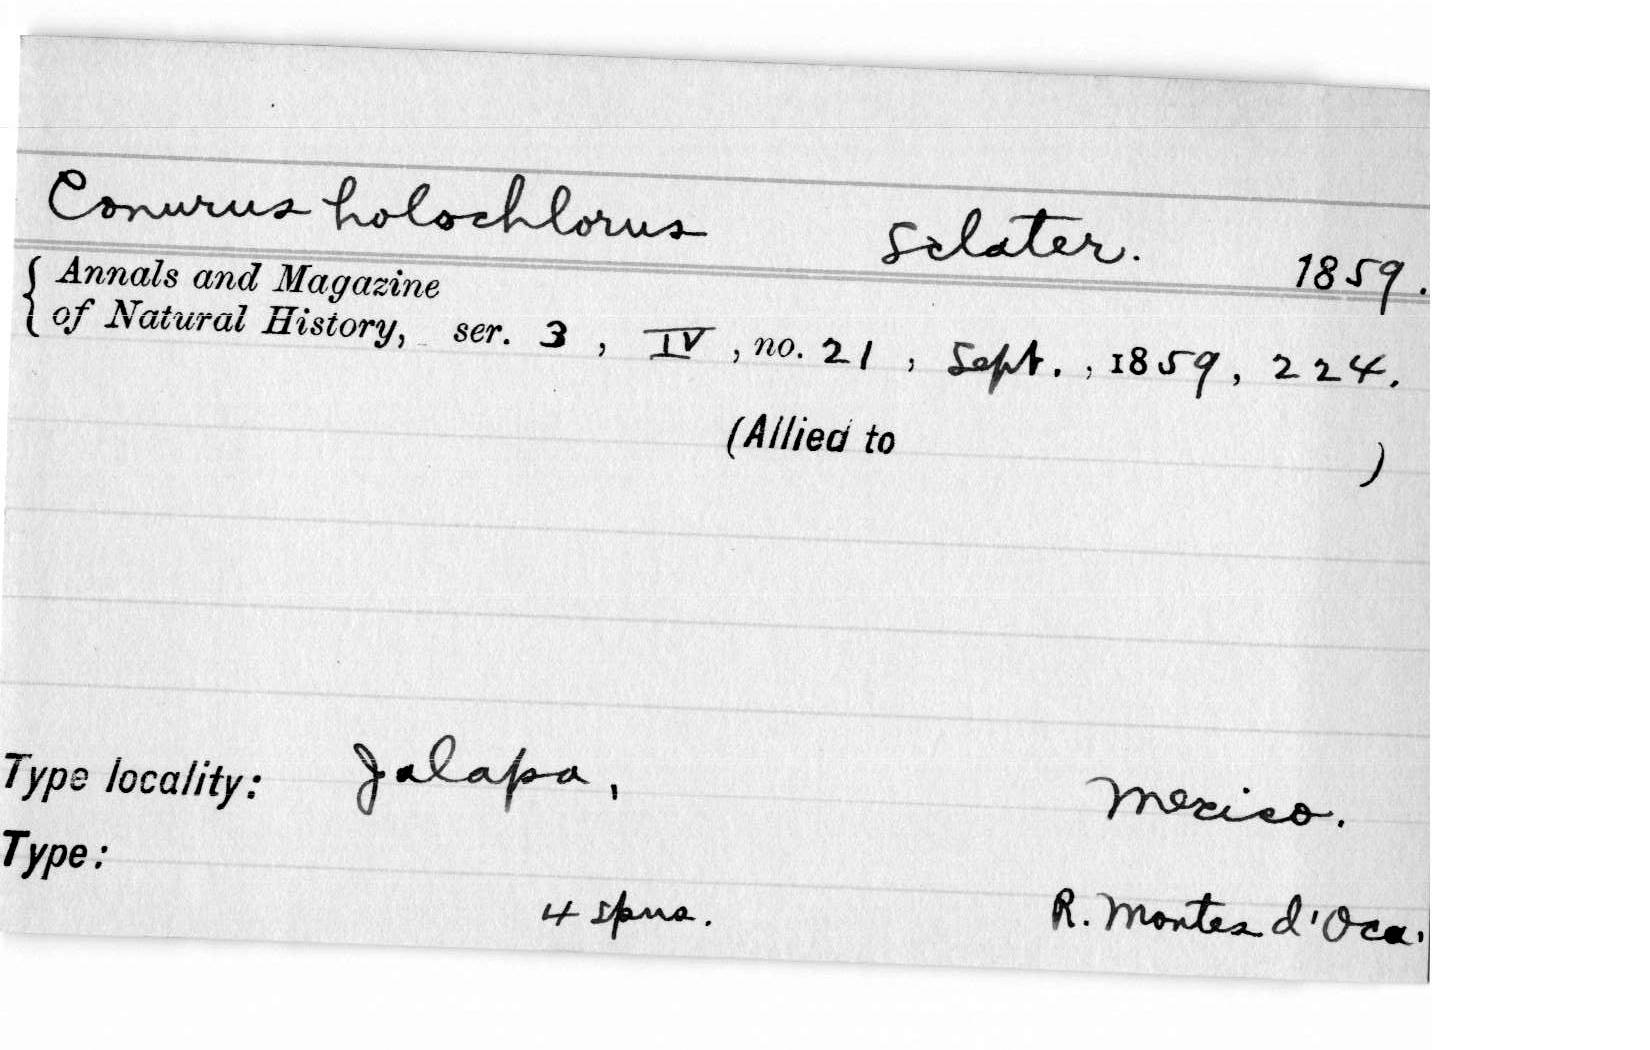 Conurus holochlorus Sclater. 1859.
{ Annals and Magazine
of Natural History, ser. 3, IV, no. 21, Sept., 1859, 224.
(Allied to )
Type locality: Jalapa, Mexico.
Type:
4 spns. R. Montes d'Oca.